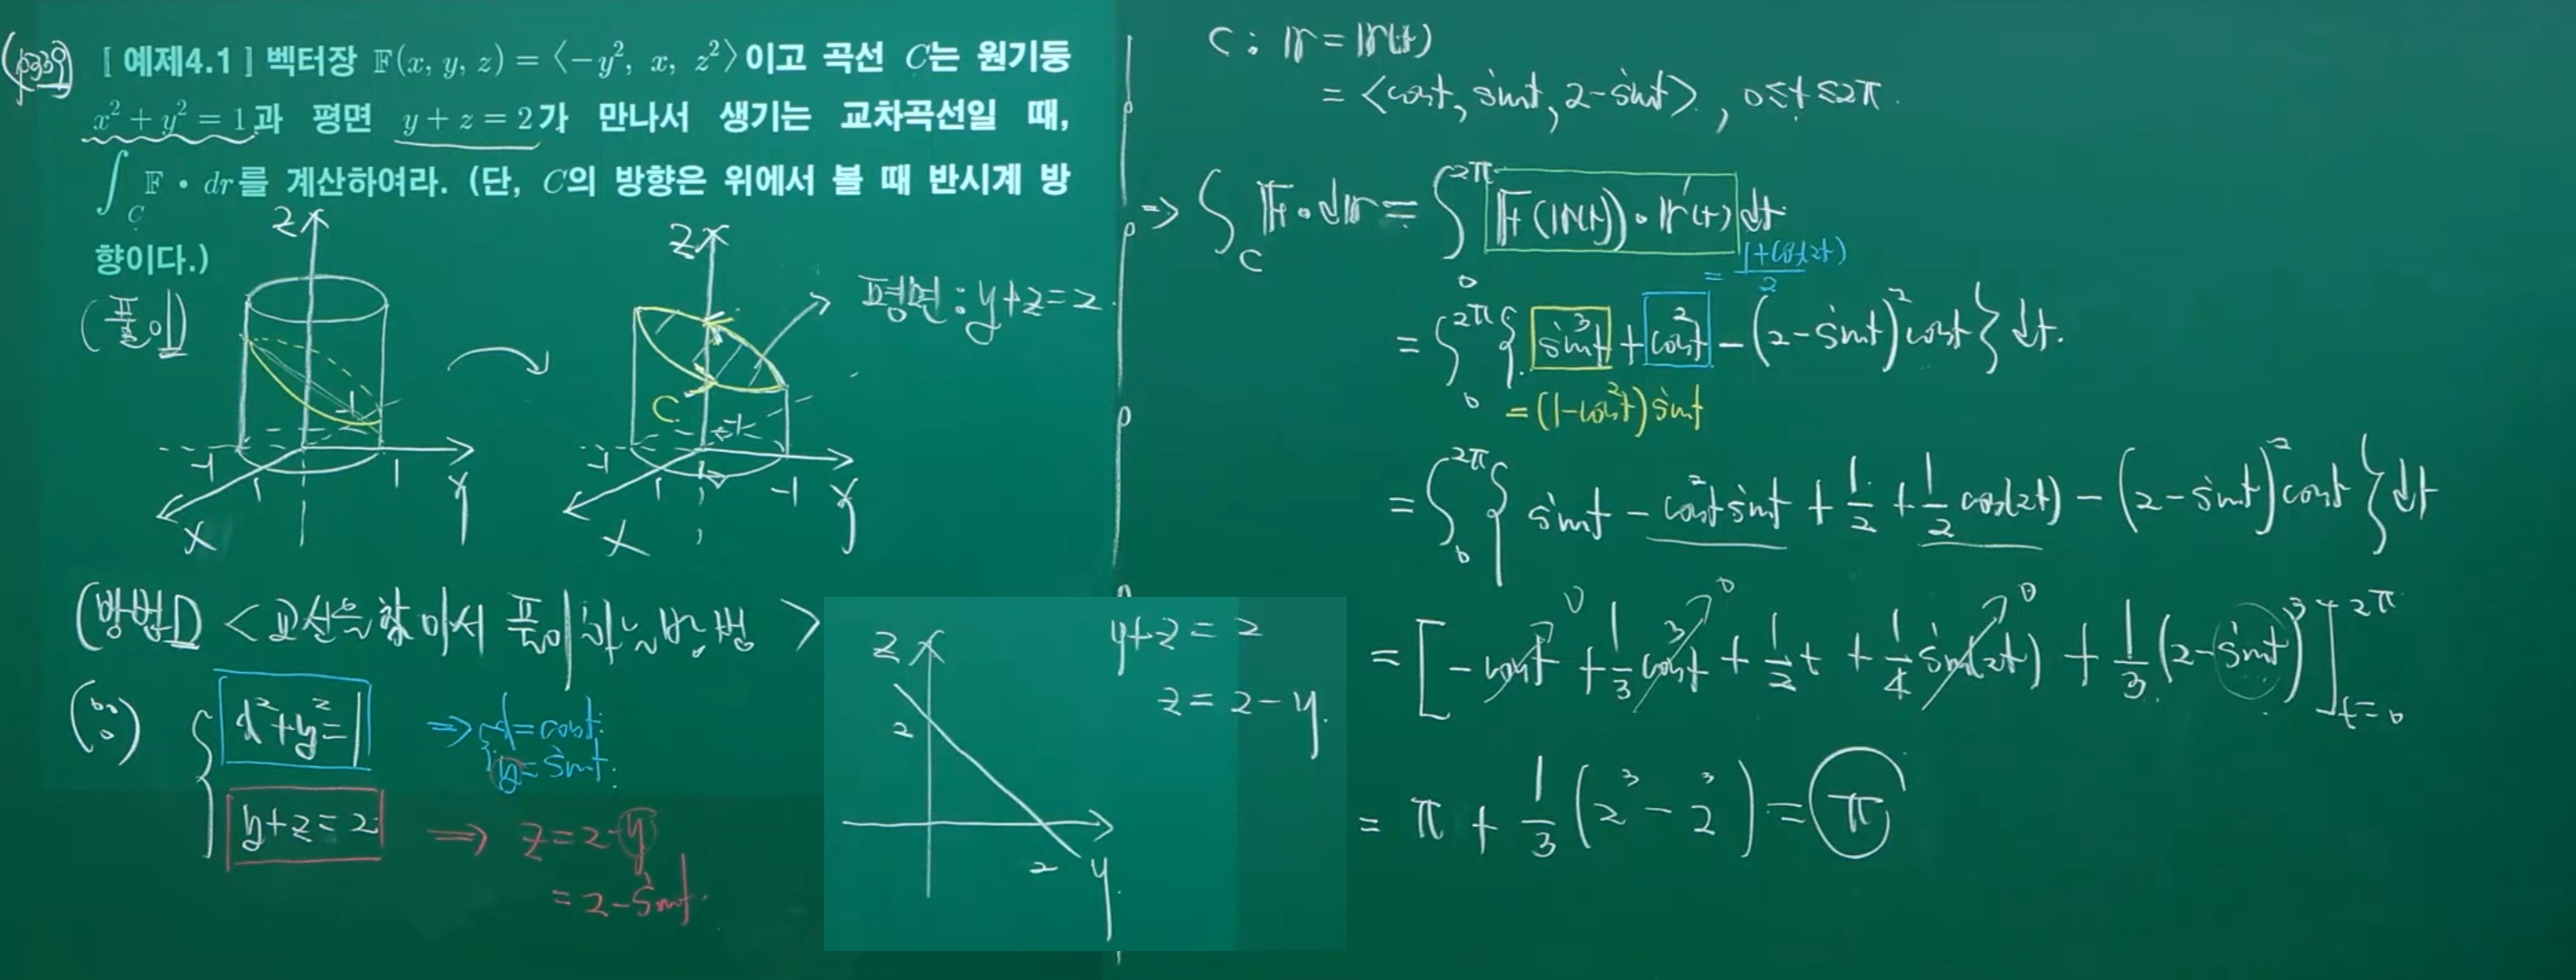 (p239)
[ 예제4.1 ] 벡터장 𝔽(x, y, z) = ⟨-y², x, z²⟩이고 곡선 C는 원기둥
x² + y² = 1과 평면 y + z = 2가 만나서 생기는 교차곡선일 때,
∫_C 𝔽 • dr를 계산하여라. (단, C의 방향은 위에서 볼 때 반시계 방
향이다.)
(풀이)
z
-1
-1
1
1
y
x
z
평면 : y+z=2
C
-1
1
-1
y
x
(방법1) <교선을 찾아서 풀이하는 방법>
(∵)
x²+y²=1 ⇒ x=cost
y=sint
y+z=2 ⇒ z=2-y
=2-sint
z
2
2
y
y+z=2
z=2-y
C : 𝕣 = 𝕣(t)
= <cost, sint, 2-sint>, 0≤t≤2π
⇒ ∫_C 𝔽•d𝕣 = ∫_0^2π 𝔽(𝕣(t))•𝕣'(t) dt
= (1+cos(2t))/2
= ∫_0^2π { sin³t + cos²t - (2-sint)²cost } dt
= (1-cos²t)sint
= ∫_0^2π { sint - cos²t sint + 1/2 + 1/2 cos(2t) - (2-sint)²cost } dt
0 0 0
= [ -cost + 1/3 cos³t + 1/2 t + 1/4 sin(2t) + 1/3 (2-sint)³ ]_t=0^2π
= π + 1/3 (2³ - 2³) = π